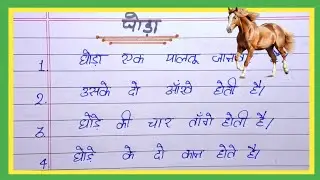 घोड़ा
1. घोड़ा एक पालतू जानव
2. उसके दो आँखे होती है।
3. घोड़े की चार टाँगे होती है।
4. घोड़े के दो कान होते है।